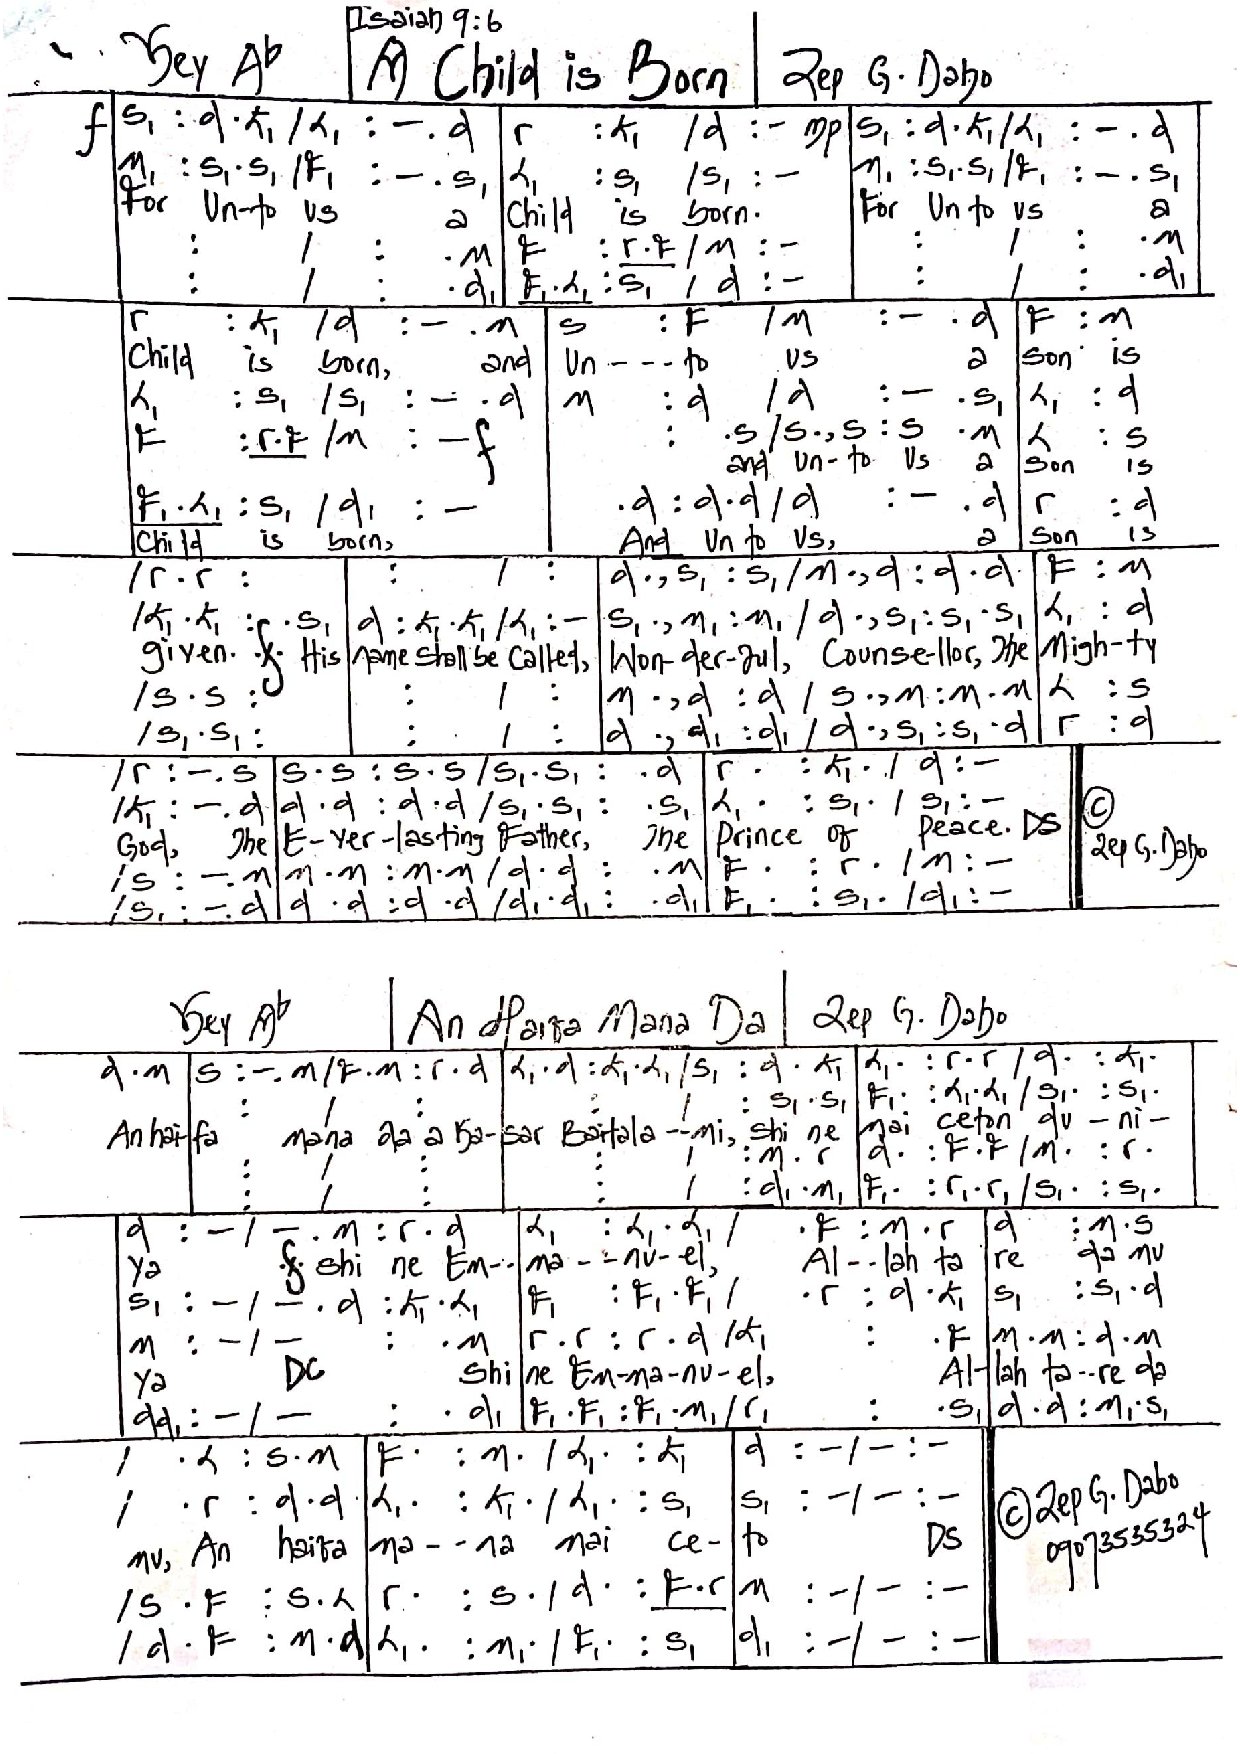 Isaiah 9:6
Key Ab | A Child is Born | Zep G. Dabo
f | s₁ : d . t₁ / l₁ : - . d | r : t₁ / d : - mp | s₁ : d . t₁ / l₁ : - . d
m₁ : s₁ . s₁ / f₁ : - . s₁ | l₁ : s₁ / s₁ : - | m₁ : s₁ . s₁ / f₁ : - . s₁
For Un-to us a | Child is born. | For Un to us a
: / : . m | f : r . f / m : - | : / : . m
: / : . d₁ | f₁ . l₁ : s₁ / d : - | : / : . d₁
r : t₁ / d : - . m | s : f / m : - . d | f : m
Child is born, and | Un---to us a | son is
l₁ : s₁ / s₁ : - . d | m : d / d : - . s₁ | l₁ : d
f : r . f / m : - f | : . s / s . , s : s . m | l : s
and un-to us a | son is
f₁ . l₁ : s₁ / d₁ : - | . d : d . d / d : - . d | r : d
Child is born, | And Un to us, a | son is
/ r . r : | : / : | d . , s₁ : s₁ / m . , d : d . d | f : m
/ t₁ . t₁ : . s₁ | d : t₁ . t₁ / l₁ : - | s₁ . , m₁ : m₁ / d . , s₁ : s₁ . s₁ | l₁ : d
given. :S: His | name shall be Called, | Won-der-ful, Counse-llor, The | Migh-ty
/ s . s : | : / : | m . , d : d / s . , m : m . m | l : s
/ s₁ . s₁ : | : / : | d . , d₁ : d₁ / d . , s₁ : s₁ . d | r : d
/ r : - . s | s . s : s . s / s₁ . s₁ : . d | r . : t₁ . / d : -
/ t₁ : - . d | d . d : d . d / s₁ . s₁ : . s₁ | l₁ . : s₁ . / s₁ : -
God, The | E-ver-lasting Father, The | Prince of Peace. DS | ©
/ s : - . m | m . m : m . m / d . d : . m | f . : r . / m : - | Zep G. Dabo
/ s₁ : - . d | d . d : d . d / d₁ . d₁ : . d₁ | f₁ . : s₁ . / d₁ : -
Key Ab | An Haifa Mana Da | Zep G. Dabo
d . m | s : - . m / f . m : r . d | l₁ . d : t₁ . l₁ / s₁ : d . t₁ | l₁ . : r . r / d . : t₁ .
: / : | : / : s₁ . s₁ | f₁ . : l₁ . l₁ / s₁ . : s₁ .
An hai-fa mana da a Ka-sar Baitala--mi, shi ne | mai ceton du-ni-
: / : | : / : m . r | d . : f . f / m . : r .
: / : | : / : d₁ . m₁ | f₁ . : r₁ . r₁ / s₁ . : s₁ .
d : - / - . m : r . d | l₁ : l₁ . l₁ / . f : m . r | d : m . s
ya :S: shi ne Em-- | ma---nu-el, Al--lah ta | re da mu
s₁ : - / - . d : t₁ . l₁ | f₁ : f₁ . f₁ / . r : d . t₁ | s₁ : s₁ . d
m : - / - : . m | r . r : r . d / t₁ : . f | m . m : d . m
ya DC Shi | ne Em-ma-nu-el, Al- | lah ta--re da
dd₁ : - / - : . d₁ | f₁ . f₁ : f₁ . m₁ / r₁ : . s₁ | d . d : m₁ . s₁
/ . l : s . m | f . : m . / l₁ . : t₁ | d : - / - : -
/ . r : d . d | l₁ . : t₁ . / l₁ . : s₁ | s₁ : - / - : - | © Zep G. Dabo
mu, An haifa | ma---na mai ce- | to DS | 09073535324
/ s . f : s . l | r . : s . / d . : f . r | m : - / - : -
/ d . f : m . d | l₁ . : m₁ . / f₁ . : s₁ | d₁ : - / - : -